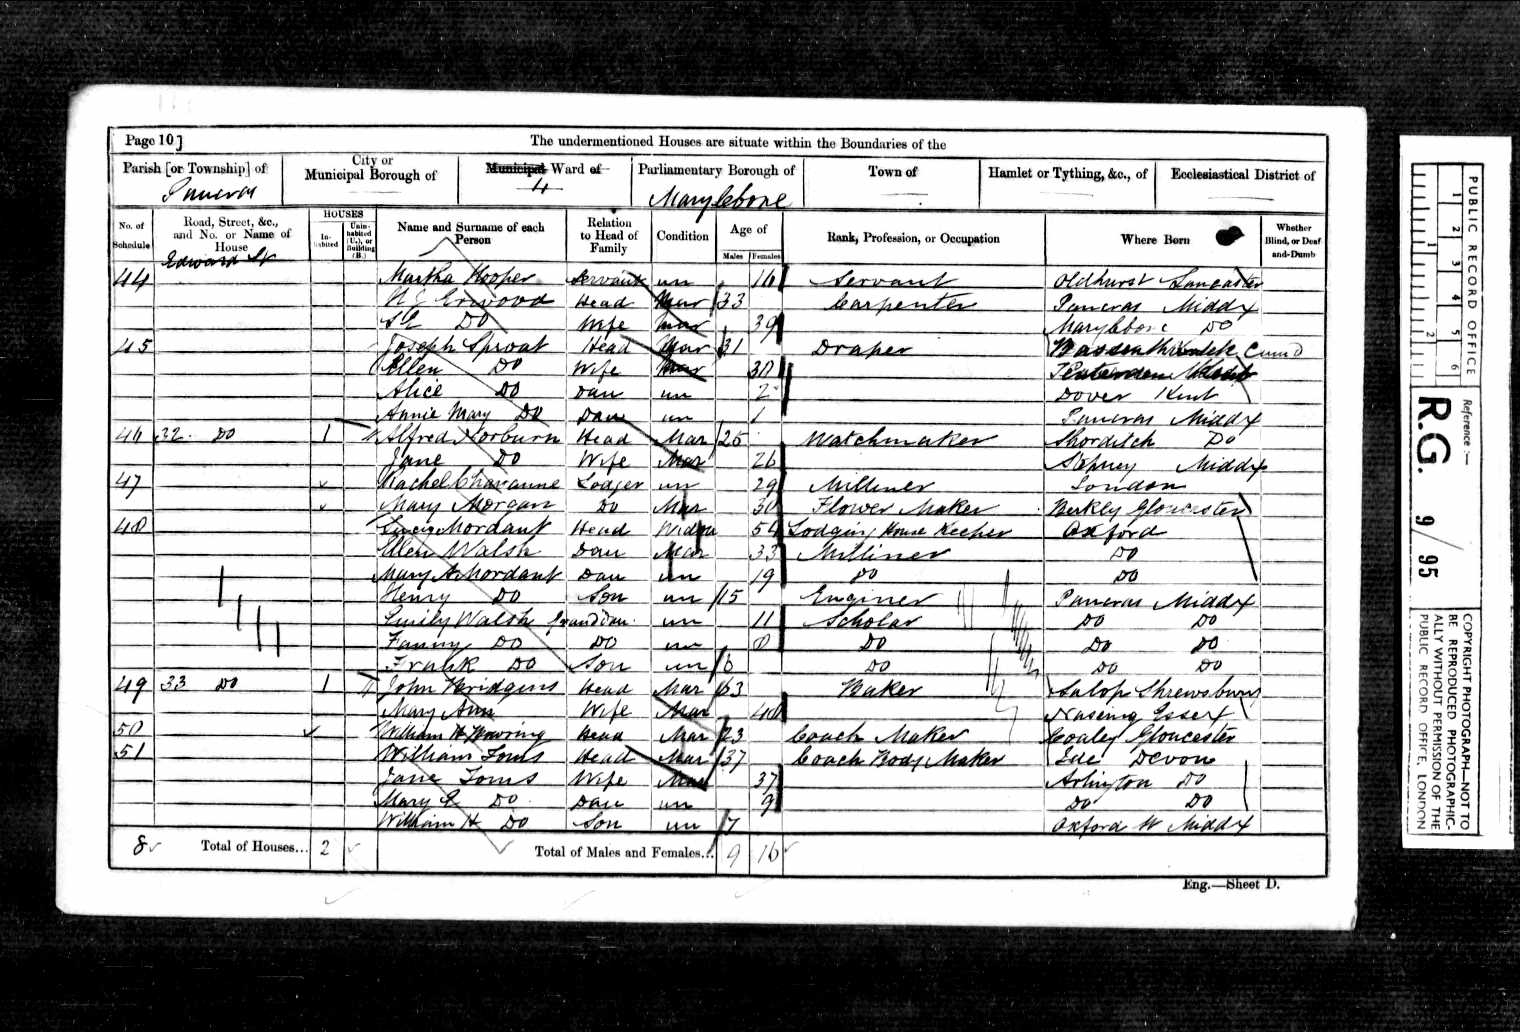 Page 10]
The undermentioned Houses are situate within the Boundaries of the
Parish [or Township] of
Pancras
City or Municipal Borough of
Municipal Ward of
4
Parliamentary Borough of
Marylebone
Town of
Hamlet or Tything, &c., of
Ecclesiastical District of
No. of Schedule
Road, Street, &c., and No. or Name of House
HOUSES
Inhabited
Uninhabited (U.), or Building (B.)
Name and Surname of each Person
Relation to Head of Family
Condition
Age of
Males
Females
Rank, Profession, or Occupation
Where Born
Whether Blind, or Deaf and-Dumb
Edward St
44 Martha Hooper Servant un 16 Servant Oldhurst Lancaster
Erwood Head Mar 33 Carpenter Pancras Middx
Do Wife Mar 39 Marylebone Do
45 Joseph Sproat Head Mar 31 Draper Cumd
Ellen Do Wife Mar 30
Alice Do Dau un 2 Dover Kent
Annie Mary Do Dau un 1 Pancras Middx
46 32 Do 1 Alfred Norburn Head Mar 25 Watchmaker Shorditch Do
Jane Do Wife Mar 26 Stepney Middx
47 Rachel Chavanne Lodger un 29 Milliner London
Mary Morgan Do Mar 30 Flower Maker Berkley Gloucester
48 Mordant Head Widow 54 Lodging House Keeper Oxford
Ellen Walsh Dau Mar 33 Milliner Do
Mary A Mordant Dau un 19 Do Do
Henry Do Son un 15 Enginer Pancras Middx
Emily Walsh Grand Dau un 11 Scholar Do Do
Fanny Do Do un 8 Do Do Do
Frank Do Son un 6 Do Do Do
49 33 Do 1 John Bridgins Head Mar 63 Baker Salop Shrewsbury
Mary Ann Wife Mar 40 Naseing Essex
50 William H Head Mar 23 Coach Maker Coaley Gloucester
51 William Toms Head Mar 37 Coach Body Maker Ide Devon
Jane Toms Wife Mar 37 Arlington Do
Mary E Do Dau un 9 Do Do
William H Do Son un 7 Oxford St Middx
8 Total of Houses... 2 Total of Males and Females... 9 16
Eng.—Sheet D.
PUBLIC RECORD OFFICE
1 2 3 4 5 6
1 2
Reference :—
R.G. 9/95
COPYRIGHT PHOTOGRAPH—NOT TO BE REPRODUCED PHOTOGRAPHICALLY WITHOUT PERMISSION OF THE PUBLIC RECORD OFFICE, LONDON